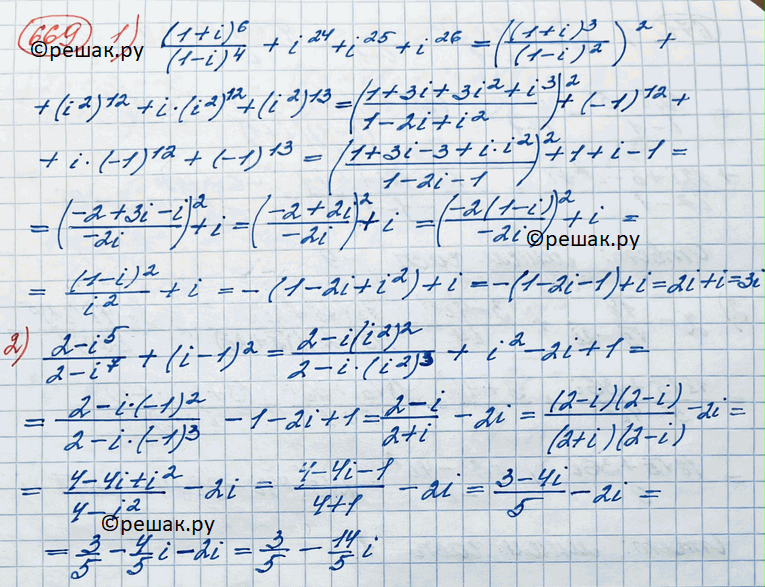 669 1) (1+i)^6/(1-i)^4 + i^24 + i^25 + i^26 = ((1+i)^3/(1-i)^2)^2 +
©решак.ру
+ (i^2)^12 + i·(i^2)^12 + (i^2)^13 = ((1+3i+3i^2+i^3)/(1-2i+i^2))^2 + (-1)^12 +
+ i·(-1)^12 + (-1)^13 = ((1+3i-3+i·i^2)/(1-2i-1))^2 + 1 + i - 1 =
= ((-2+3i-i)/(-2i))^2 + i = ((-2+2i)/(-2i))^2 + i = (-2(1-i)/(-2i))^2 + i =
©решак.ру
= (1-i)^2/i^2 + i = -(1-2i+i^2) + i = -(1-2i-1) + i = 2i + i = 3i
2) (2-i^5)/(2-i^7) + (i-1)^2 = (2-i(i^2)^2)/(2-i·(i^2)^3) + i^2 - 2i + 1 =
= (2-i·(-1)^2)/(2-i·(-1)^3) - 1 - 2i + 1 = (2-i)/(2+i) - 2i = (2-i)(2-i)/((2+i)(2-i)) - 2i =
= (4-4i+i^2)/(4-i^2) - 2i = (4-4i-1)/(4+1) - 2i = (3-4i)/5 - 2i =
©решак.ру
= 3/5 - 4/5 i - 2i = 3/5 - 14/5 i